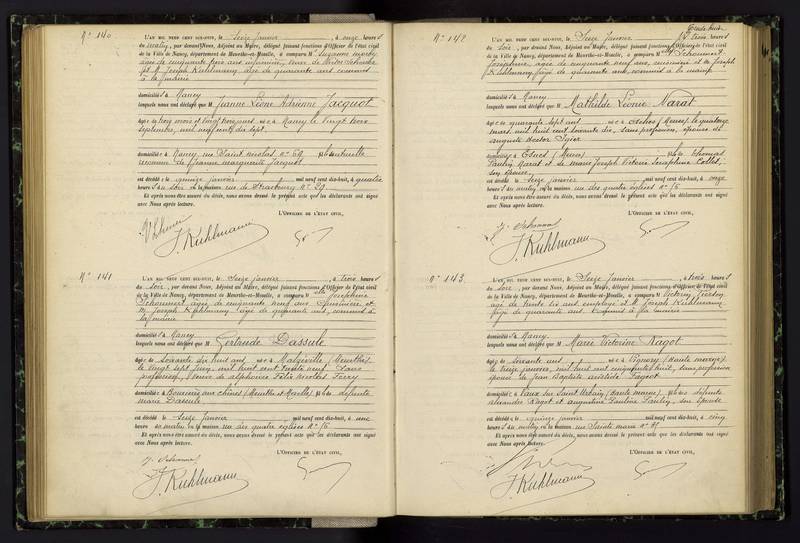 N° 140
L'AN MIL NEUF CENT DIX-HUIT, le Seize janvier, à onze heures
du matin, par devant Nous, Adjoint au Maire, délégué faisant fonctions d'Officier de l'état civil
de la Ville de Nancy, département de Meurthe-et-Moselle, a comparu M Suzanne
agée de cinquante trois ans infirmière,
et M Joseph Kuhlmann, âgé de quarante ans commis
à la mairie
domiciliés à Nancy
lesquels nous ont déclaré que M Jeanne Léone Adrienne Jacquot
âgée de trois mois et vingt trois jours née à Nancy le vingt trois
septembre, mil neuf cent dix sept.
domiciliée à Nancy, rue Saint Nicolas n° 59, fille naturelle
reconnue de Jeanne Marguerite Jacquot
est décédée le quinze janvier mil neuf cent dix-huit, à quatre
heures du soir en la maison rue de Strasbourg N° 29
Et après nous être assuré du décès, nous avons dressé le présent acte que les déclarants ont signé
avec Nous après lecture.
L'OFFICIER DE L'ÉTAT CIVIL,
J. Kuhlmann
N° 141
L'AN MIL NEUF CENT DIX-HUIT, le Seize janvier, à trois heures
du soir, par devant Nous, Adjoint au Maire, délégué faisant fonctions d'Officier de l'état civil
de la Ville de Nancy, département de Meurthe-et-Moselle, a comparu Mlle Joséphine
agée de cinquante neuf ans, et
M Joseph Kuhlmann, âgé de quarante ans, commis à
la mairie
domiciliés à Nancy
lesquels nous ont déclaré que M Gertrude Dassule
âgée de soixante dix huit ans née à Malzéville (Meurthe)
le vingt sept juin, mil huit cent trente neuf, sans
profession, veuve de Alphonse Félix Nicolas Ferry
domiciliée à Bouxières aux chênes (Meurthe et Moselle) fille de défunte
Marie Dassule
est décédée le Seize janvier mil neuf cent dix-huit, à une
heure du matin en la maison rue des quatre églises n° 15
Et après nous être assuré du décès, nous avons dressé le présent acte que les déclarants ont signé
avec Nous après lecture.
L'OFFICIER DE L'ÉTAT CIVIL,
J. Kuhlmann
N° 142
L'AN MIL NEUF CENT DIX-HUIT, le Seize janvier, à trois heures
du soir, par devant Nous, Adjoint au Maire, délégué faisant fonctions d'Officier de l'état civil
de la Ville de Nancy, département de Meurthe-et-Moselle, a comparu Mlle
Joséphine, agée de cinquante neuf ans, et M Joseph
Kuhlmann, âgé de quarante ans, commis à la mairie
domiciliés à Nancy
lesquels nous ont déclaré que M Mathilde Léonie Narat
âgée de quarante sept ans née à (Meuse), le quatorze
mars, mil huit cent soixante dix, sans profession, épouse de
Auguste Nestor
domiciliée à (Meuse) fille de Thomas
Narat et de Marie Joseph Victoire Séraphine Collet,
son épouse
est décédée le Seize janvier mil neuf cent dix-huit, à onze
heures du matin en la maison rue des quatre églises n° 15
Et après nous être assuré du décès, nous avons dressé le présent acte que les déclarants ont signé
avec Nous après lecture.
L'OFFICIER DE L'ÉTAT CIVIL,
J. Kuhlmann
N° 143
L'AN MIL NEUF CENT DIX-HUIT, le Seize janvier, à trois heures
du soir, par devant Nous, Adjoint au Maire, délégué faisant fonctions d'Officier de l'état civil
de la Ville de Nancy, département de Meurthe-et-Moselle, a comparu M Victor
âgé de trente six ans, employé et M Joseph Kuhlmann,
âgé de quarante ans, commis à la mairie
domiciliés à Nancy
lesquels nous ont déclaré que M Marie Victorine Ragot
âgée de soixante ans née à Vignory (Haute Marne)
le treize janvier, mil huit cent cinquante huit, sans profession
épouse de Jean Baptiste Aristide
domiciliée à Vaux sur Saint Urbain (Haute Marne) fille de défunts
Alexandre Ragot et Augustine Pauline, son épouse
est décédée le quinze janvier mil neuf cent dix-huit, à cinq
heures du matin en la maison rue Sainte Marie n°
Et après nous être assuré du décès, nous avons dressé le présent acte que les déclarants ont signé
avec Nous après lecture.
L'OFFICIER DE L'ÉTAT CIVIL,
J. Kuhlmann